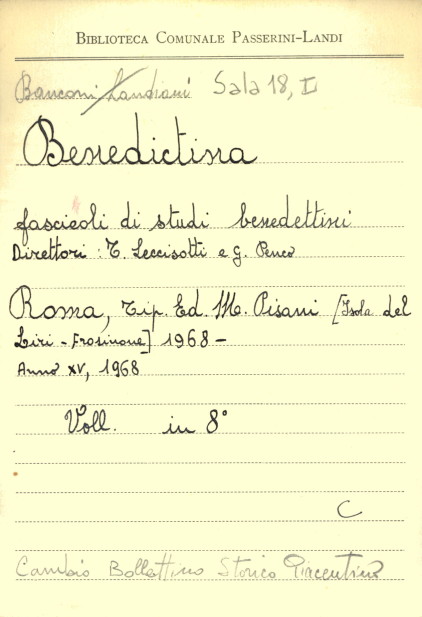 BIBLIOTECA COMUNALE PASSERINI-LANDI
Banconi Landiani Sala 18, II
Benedictina
fascicoli di studi benedettini
Direttori : T. Leccisotti e G. Penco
Roma, Tip. Ed. M. Pisani [Isola del
Liri - Frosinone] 1968 -
Anno XV, 1968
Voll. in 8°
C
Cambio Bollettino Storico Piacentino